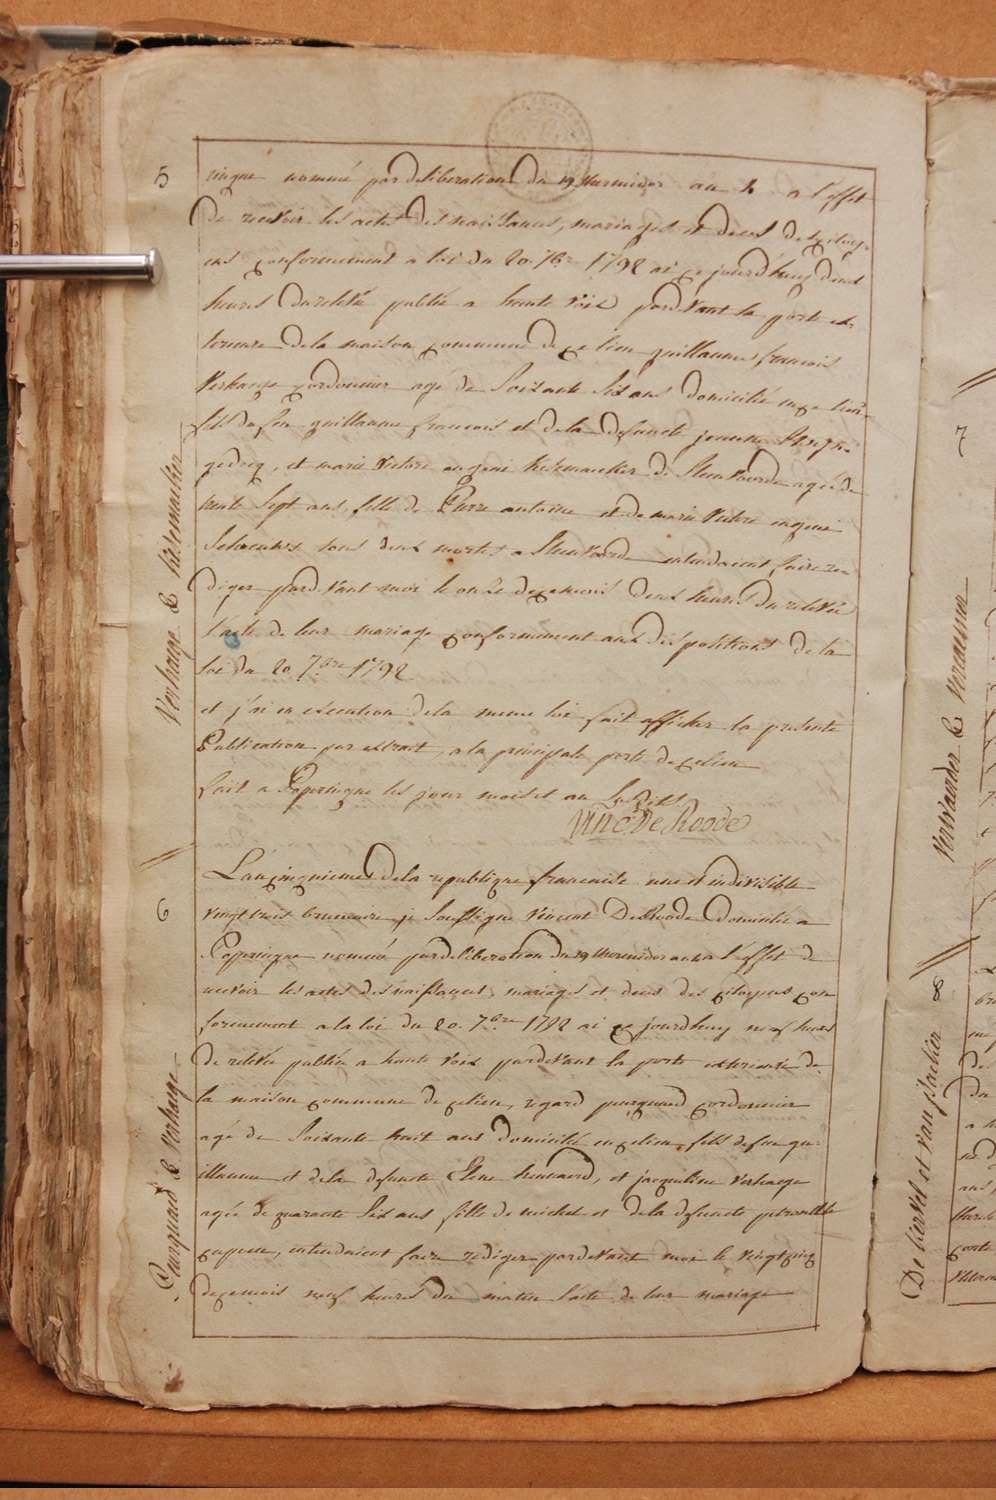 5
cinque nommé par deliberation du 19 thermidor an 4 a l'effet
de recevoir les actes des naissances, mariages et deces de citoy-
ens conformement a loi du 20. 7bre 1792 ai ce jourd'huy deux
heures de relevée publié a haute voix pardevant la porte ex-
terieure de la maison commune de ce lieu guillaume francois
Verhaege cordonnier agé de Soixante Six ans domicilié en ce lieu
fils de feu guillaume francois et de la defuncte
et marie Victoire eugenie de Steenvoorde agée de
trente Sept ans, fille de Pierre antoine et de marie Victoire eugenie
tous deux morts a Steenvoorde entendoient faire re-
diger pardevant moi le onze de ce mois deux heures de relevée
l'acte de leur mariage conformement aux dispositions de la
loi du 20 7bre 1792
et j'ai en execution de la meme loi fait afficher la presente
Publication par extrait, a la principale porte de ce lieu
fait a Poperingue les jour mois et an Susdits
Vinct De Roode
Verhaege & Kesemaecker
6
L'an cinquieme de la republique francaise une et indivisible
vingt trois brumaire je Soussigne Vincent DeRoode domicilié a
Poperingue nommé par deliberation du 19 thermidor an 4 a l'effet de
recevoir les actes des naissances, mariages et deces des citoyens con
formement a la loi du 20. 7bre 1792 ai ce jourdhuy neuf heures
de relevée publiée a haute voix pardevant la porte exterieure de
la maison commune de ce lieu, cordonnier
agé de Soixante huit ans domicilié en ce lieu, fils de feu gu-
illaume et de la defuncte et jacqueline Verhaege
agée de quarante Six ans fille de michel et de la defuncte petronille
entendoient faire rediger pardevant moi le vingt cinq
de ce mois neuf heures du matin l'acte de leur mariage
Pourquaed & Verhaege
7
Verstraeder & Vercamer
8
De Kervel et Van